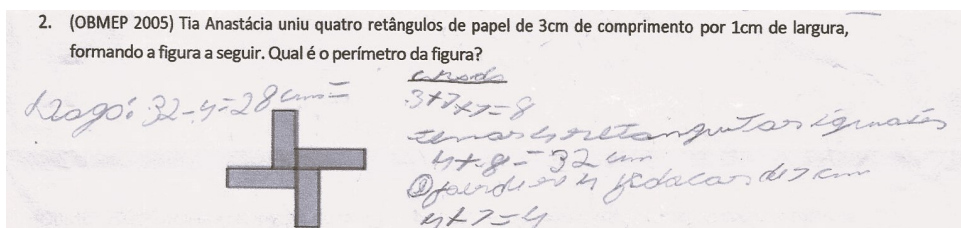 2. (OBMEP 2005) Tia Anastácia uniu quatro retângulos de papel de 3cm de comprimento por 1cm de largura,
formando a figura a seguir. Qual é o perímetro da figura?
32-4=28 cm
=8
temos 4 retangulos iguais
=32 cm
4 pedaços de
=4